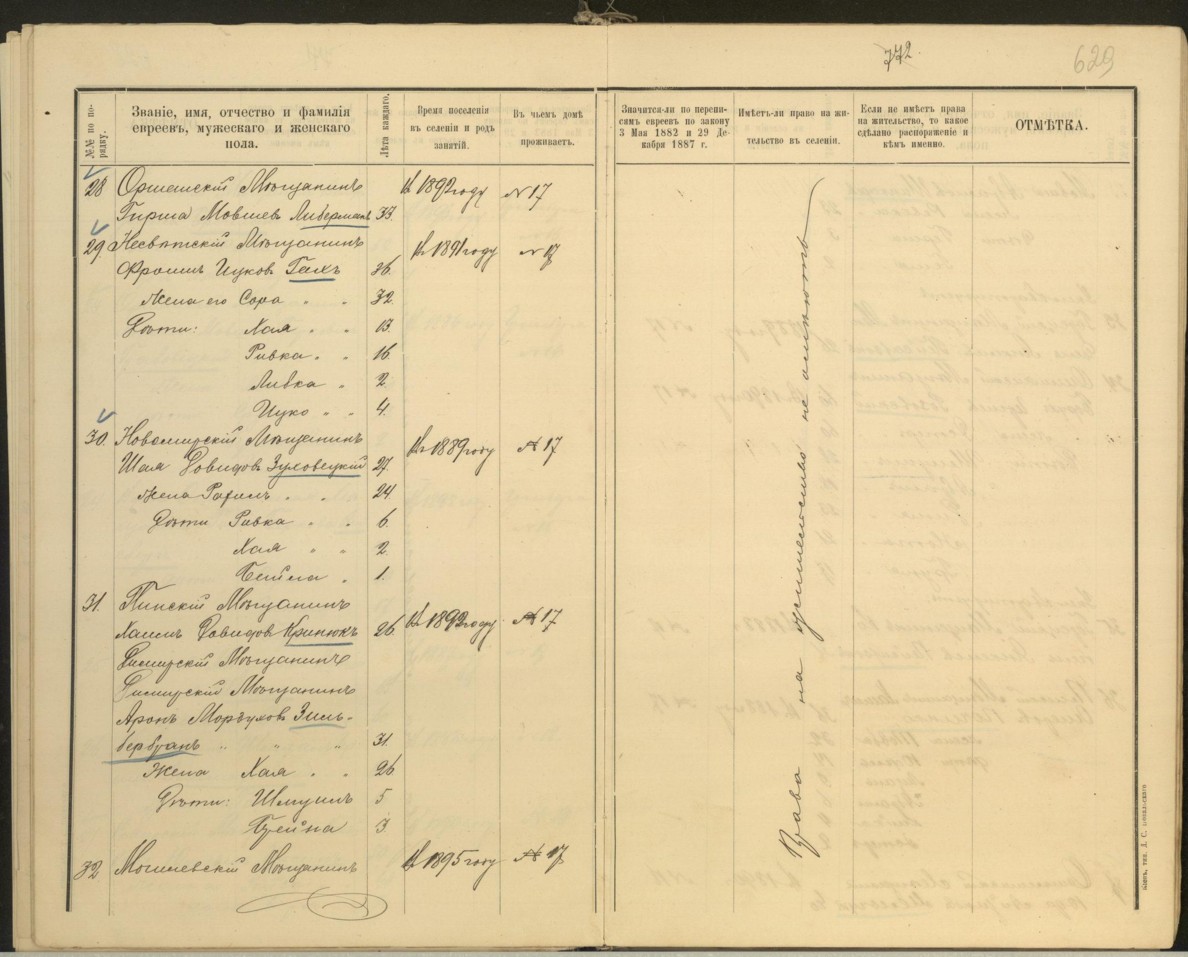 772
629
№№ по порядку.
Званіе, имя, отчество и фамилія
евреевъ, мужескаго и женскаго
пола.
Лѣта каждаго.
Время поселенія
въ селеніи и родъ
занятій.
Въ чьемъ домѣ
проживаетъ.
Значится-ли по перепи-
сямъ евреевъ по закону
3 Мая 1882 и 29 Де-
кабря 1887 г.
Имѣетъ-ли право на жи-
тельство въ селеніи.
Если не имѣетъ права
на жительство, то какое
сдѣлано распоряженіе и
кѣмъ именно.
ОТМѢТКА.
28 Оршанскій Мѣщанинъ Въ 1892 году № 17
Гирша Мовшевъ Либерманъ 33.
29. Несвѣтскій Мѣщанинъ Въ 1891 году № 17
Фроимъ Ицковъ 36.
Жена его Сора " " 32.
Дѣти: Хая " " 13.
Ривка " " 16.
Ливка " 2.
Ицко " " 4.
30. Новомирскій Мѣщанинъ Въ 1889 году № 17
Шая Довидовъ Зуховецкій 27.
Жена Рахиль " " 24.
Дѣти Ривка " " 6.
Хая " " 2.
Бейла " 1.
31. Пинскій Мѣщанинъ
Хаимъ Довидовъ Кринюкъ 26. № 17
Мѣщанинъ
Мѣщанинъ
Аронъ Зиль-
" " " 31.
Жена Хая " " 26
Дѣти: Шмуиль 5
3.
32. Могилевскій Мѣщанинъ Въ 1895 году № 17
Права на жительство не имѣютъ
Кіевъ, тип. Д. С. Повальскаго